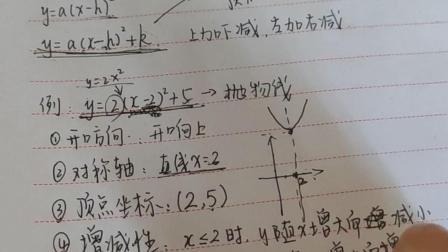 y=a(x-h)²
y=a(x-h)²+k
上加下减，左加右减
y=2x²
例：y=2(x-2)²+5 → 抛物线
①开口方向：开口向上
②对称轴：直线x=2
③顶点坐标：(2,5)
2
④增减性：x≤2时，y随x增大而减小